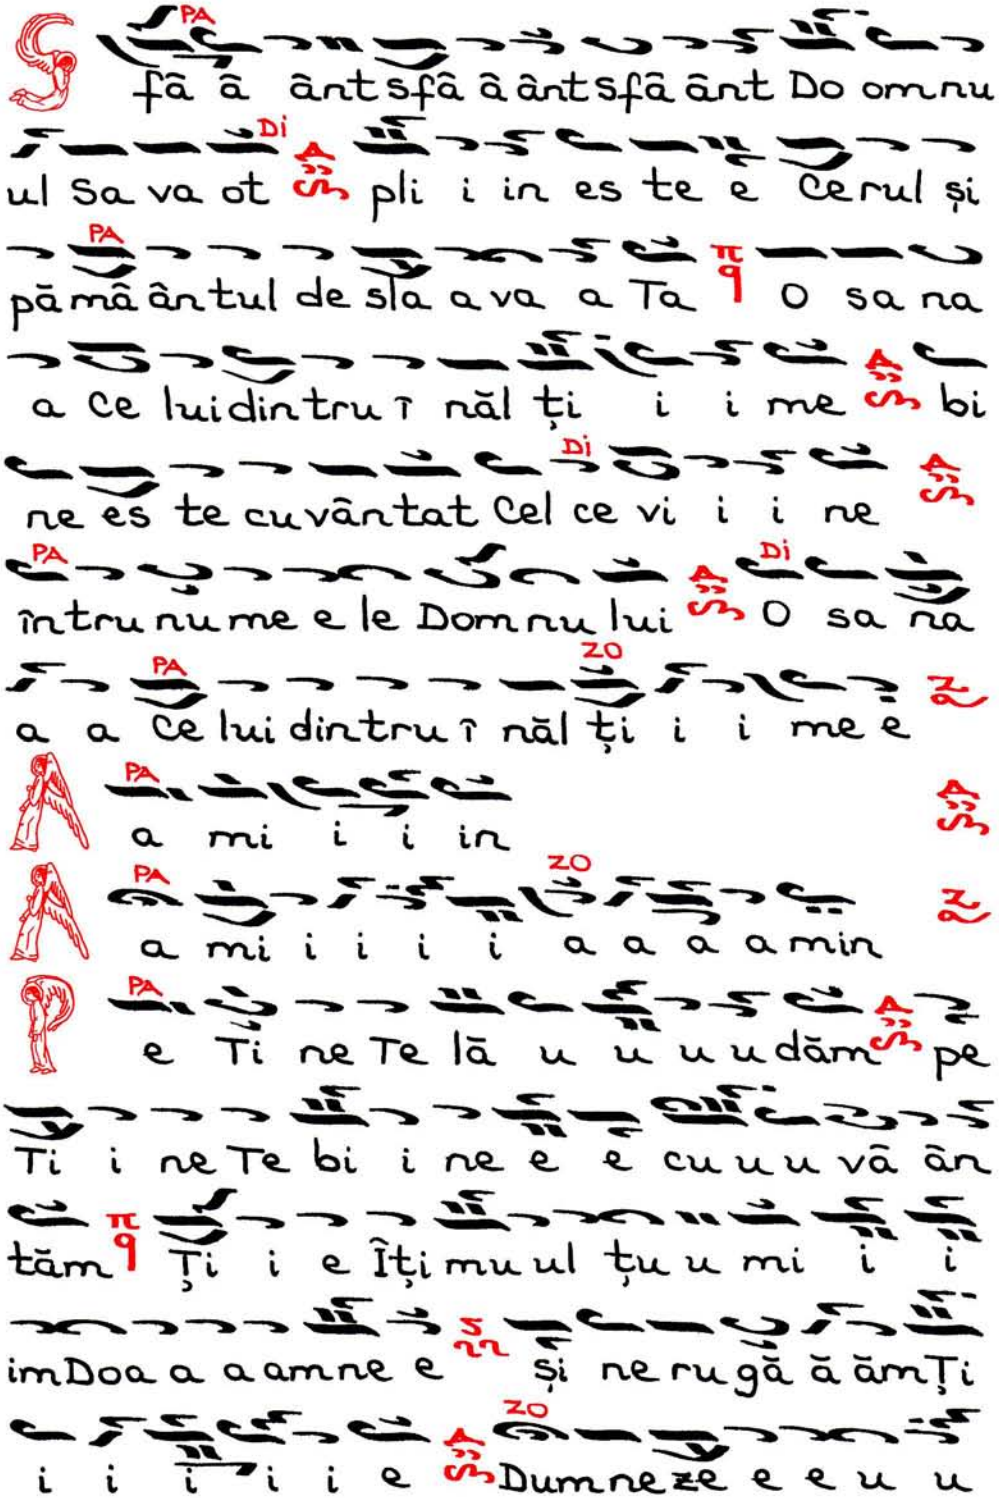 PA
Sfâ â ânt sfâ â ânt sfâ ânt Do om nu
Di
ul Sa va ot pli i in es te e Cerul și
PA
pă mâ ân tul de sla a va a Ta π q O sa na
a Ce lui din tru î năl ți i i me bi
Di
ne es te cu vân tat Cel ce vi i i ne
PA Di
în tru nu me e le Dom nu lui O sa na
PA ZO
a a Ce lui din tru î năl ți i i me e
PA
A a mi i i in
PA ZO
A a mi i i i i a a a a min
PA
P e Ti ne Te lă u u u u dăm pe
Ti i ne Te bi i ne e e cu u u vâ ân
tăm π q Ți i e Îți mu ul țu u mi i i
im Doa a a a amne e și ne ru gă ă ăm Ți
ZO
i i i i i e Dum ne ze e e e u u